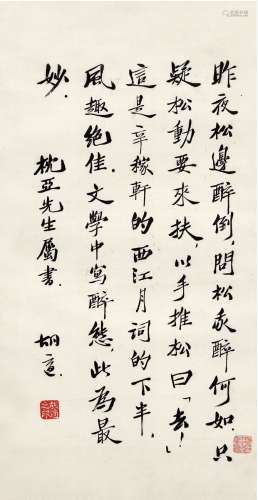 昨夜松邊醉倒，問松我醉何如。只
疑松動要來扶，以手推松曰「去！」
這是辛稼軒的西江月詞的下半，
風趣絕佳。文學中寫醉態，此為最
妙。
枕亞先生屬書。
胡適